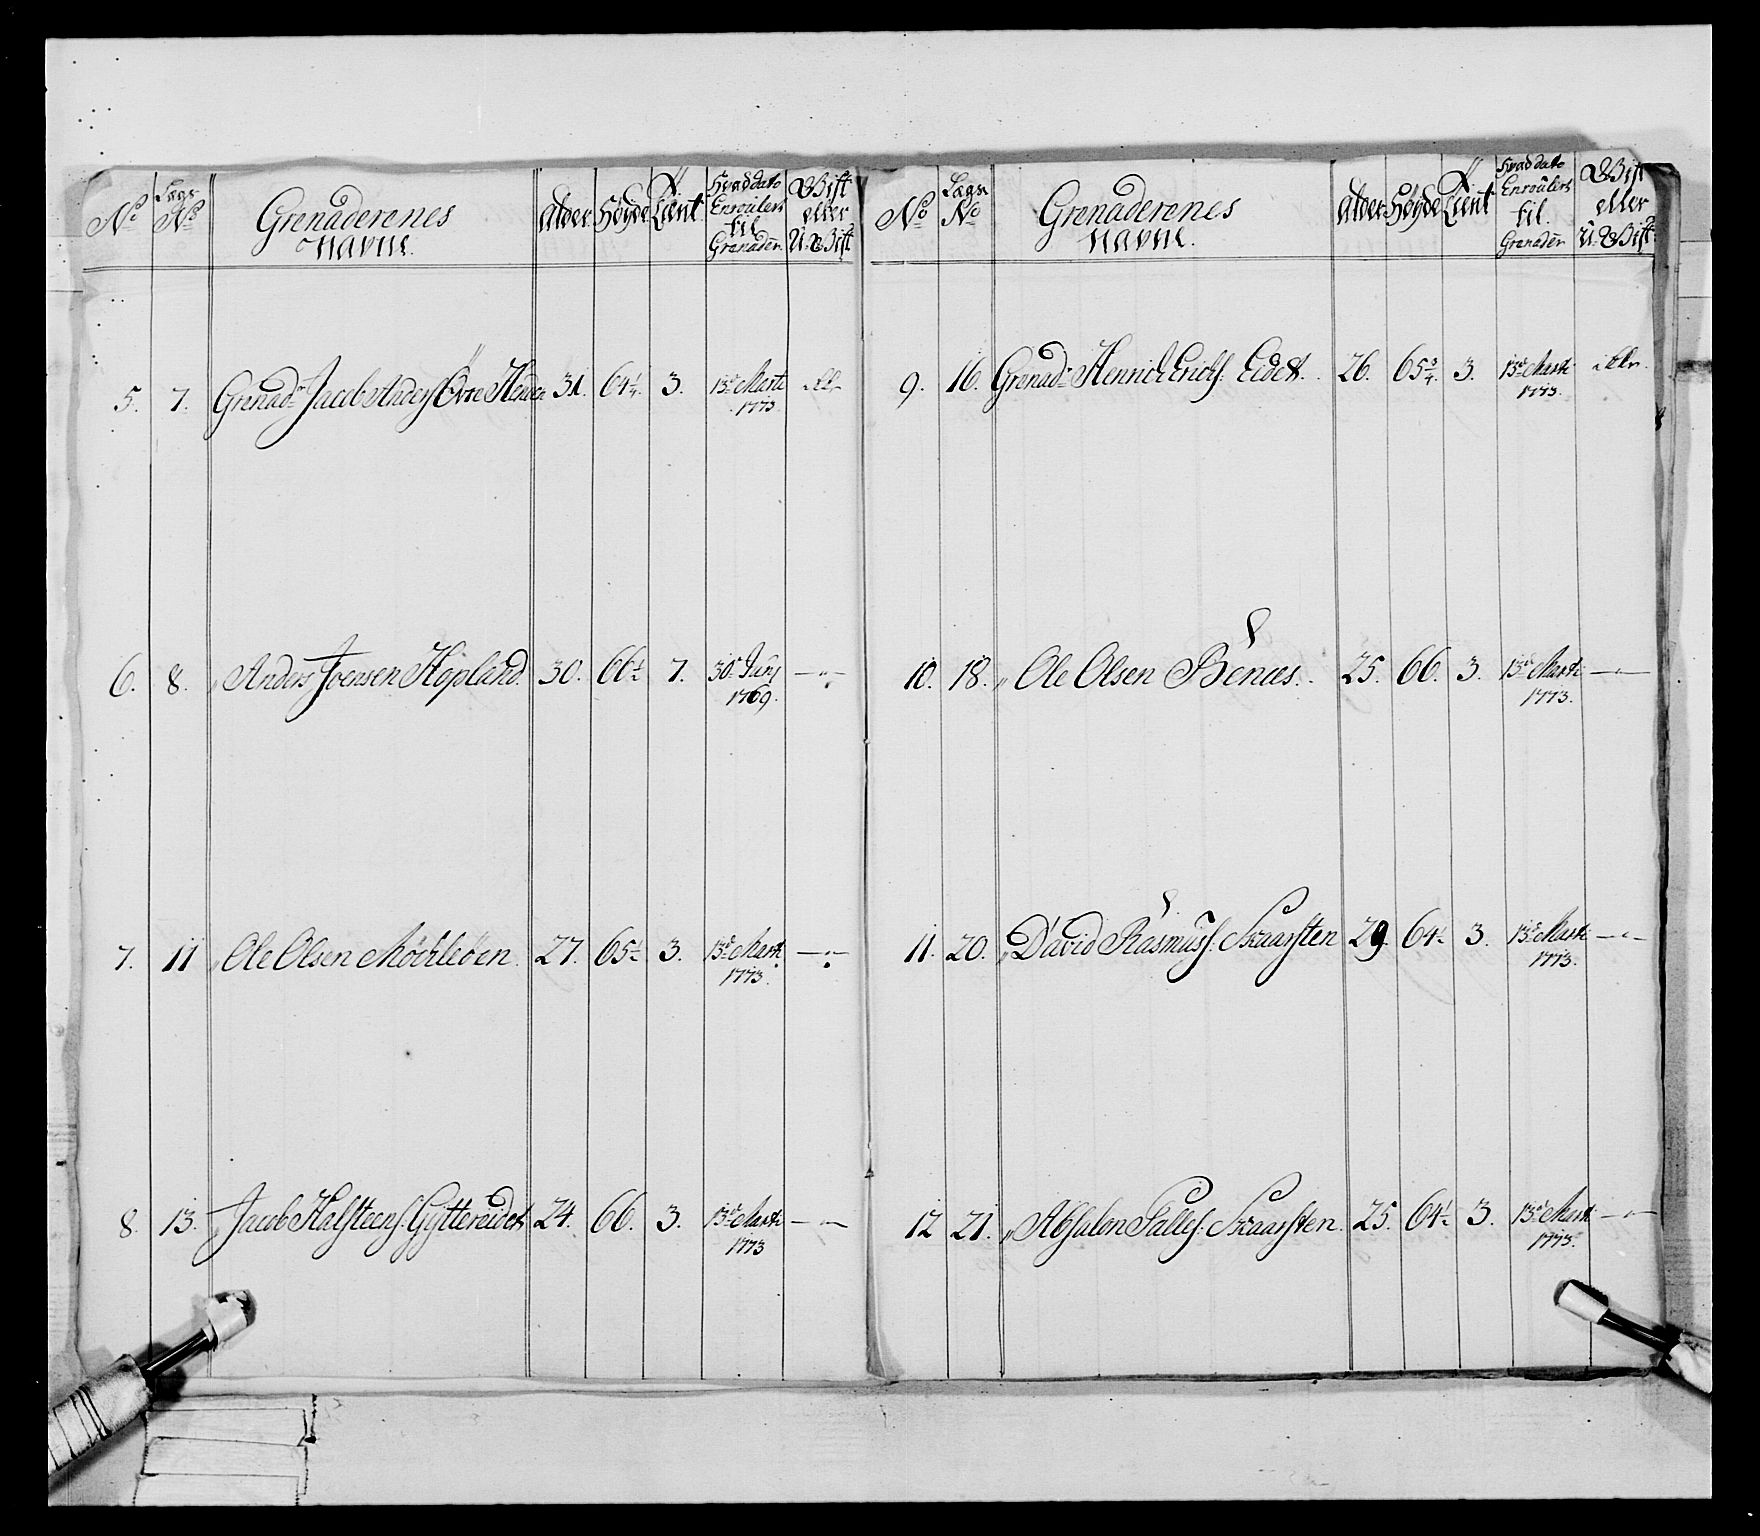 No Lægs No Grenaderenes Navne. Alder. Høyde Tient Hvad dato Enroulert til Grenadeer Gift eller U. Gift
5. 7. Grenad: Jacob Anders: Øvre 31. 64¼. 3. 13de Marti 1773.
6. 8. „ Anders Joensen Hopland. 30. 66½ 7. 30te Junj 1769. —„—
7. 11 „ Ole Olsen 27. 65½ 3. 13de Marti 1773. —„—
8. 13. „ Jacob Halsteens: Gyttereidet 24. 66. 3. 13de Marti 1773 —„—
No Lægs No Grenaderenes Navne. Alder Høyde Tient Hvad dato Enroulert til Grenadeer Gift eller U. Gift
9. 16. Grenad: Henrich Erichs: Eidet. 26. 65¾. 3. 13de Marti 1773.
10. 18. „ Ole Olsen Bønæs. 25. 66. 3. 13de Marti 1773. —„—
11. 20. „ David Rasmuss: Skaarsten 29. 64½ 3. 13de Marti 1773. —„—
12 21. „ Absalon Palles: Skaarsten. 25. 64½ 3. 13de Marti 1773. —„—